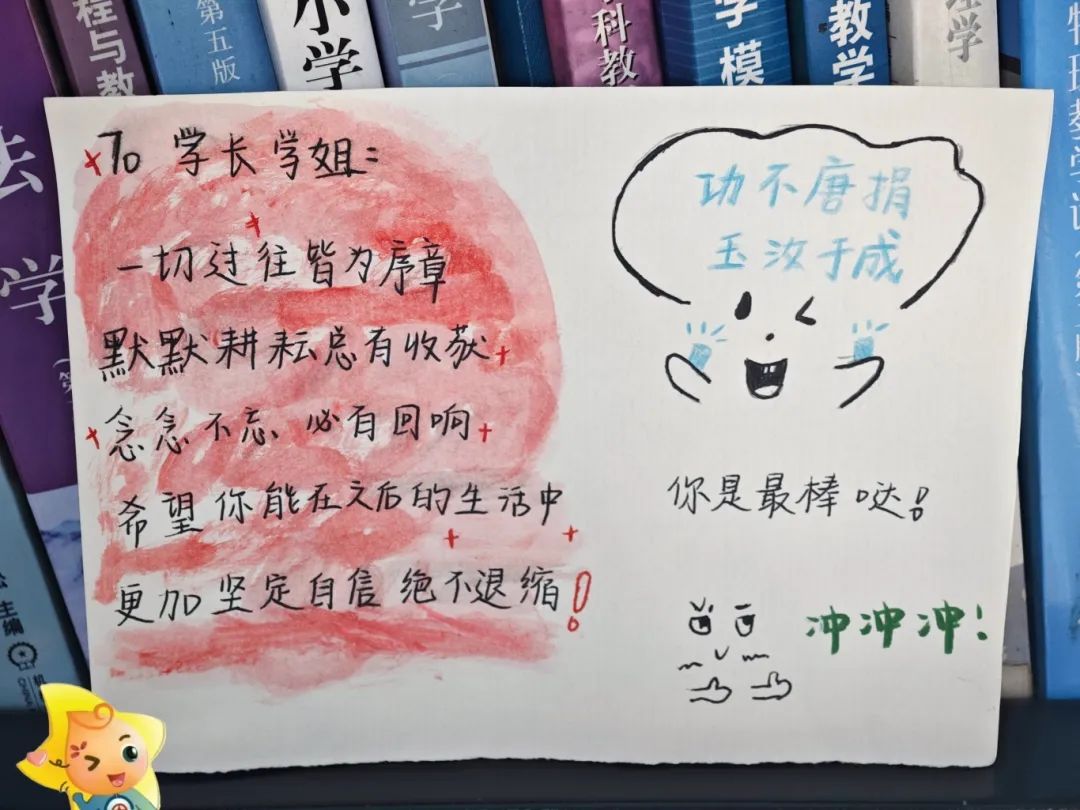 程与教
第五版
小学
学
科教
学模
教学
理学
法
学
To 学长学姐：
一切过往皆为序章
默默耕耘总有收获
念念不忘、必有回响
希望你能在之后的生活中
更加坚定自信 绝不退缩！
功不唐捐
玉汝于成
你是最棒哒！
冲冲冲！
主编